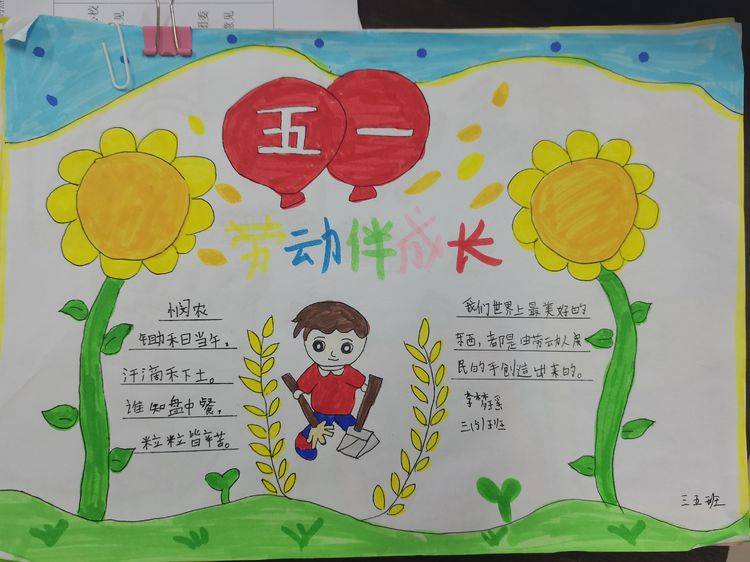 五一
劳动伴成长
悯农
锄禾日当午，
汗滴禾下土。
谁知盘中餐，
粒粒皆辛苦。
我们世界上最美好的
东西，都是由劳动人
民的手创造出来的。
李梦
三五班